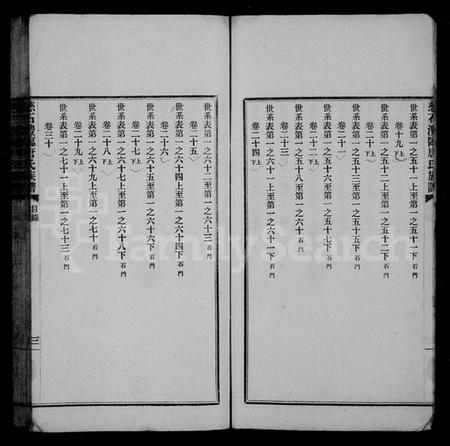 氏族譜
世系表第一之五十一上至第一之五十一下 石門
卷十九 上下
世系表第一之五十一上至第一之五十二下 石門
卷二十 上下
世系表第一之五十 石門
卷二十一
世系表第一之五十 石門
卷二十二 上下
世系表第一之五十 上至第一之六十 石門
卷二十三
世系表第一之六十一上至第一之六十一下 石門
卷二十四 上下
世系表第一之六十二至第一之六十三 石門
卷二十五
世系表第一之六十四上至第一之六十四下 石門
卷二十六
世系表第一之六十五至第一之六十六下 石門
卷二十七 上下
世系表第一之六十七上至第一之六十八下 石門
卷二十八 上下
世系表第一之六十九上至第一之七十 石門
卷二十九 上下
世系表第一之七十一上至第一之七十三 石門
卷三十
目錄
三
FamilySearch